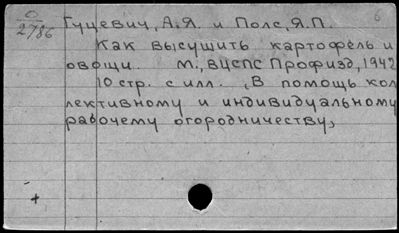 0
2786
Гуцевич, А.Я. и Полс, Я.П.
б
Как высушить картофель и
овощи. М., ВЦСПС Профизд, 1942
10 стр. с илл. (В помощь кол
лективному и индивидуальному
рабочему огородничеству)
+